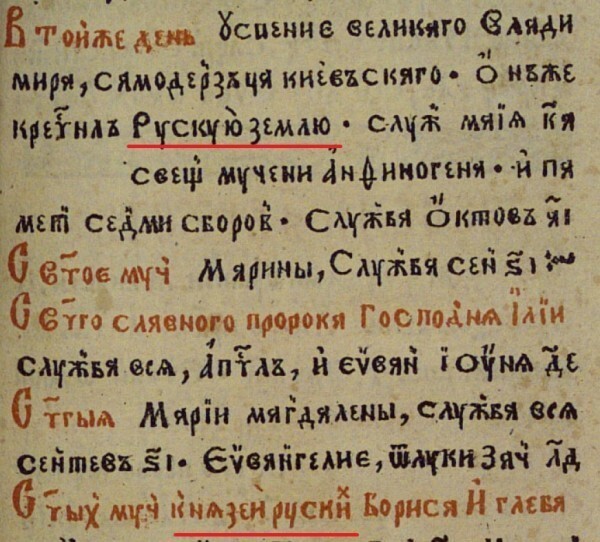 В той́же день Ѹспение великаго Влади
мира, самодерзъца киевъскаго · Ѻ нъже
крестилъ Рускую̀ землю · слуⷤ маиꙗ к҃а
свещ҃ мучени Анѳиногена · и па
меⷮ седми сборов · Служба Ѻктовъ а҃і
Светое муⷱ Марины, Служба сен ѕ҃і :~
Свеⷮго славного пророка Господнѧ Иліи
служба всѧ, апⷭтлъ, и еѵван іоунѧ д҃е
Стгыѧ Маріи магдалены, служба всѧ
сентевъ ѕ҃і · Еѵвангелие, ѿлуки зач л҃д
Стыⷯ муⷱ кнѧзей рускиⷯ Бориса И глеба